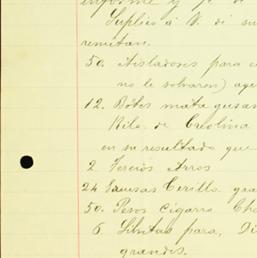 informe y
Suplico á V. de su
remitan.
50. Aisladores para
no le sobraron)
12. Botes mata gusan
Kilo. de Creolina
en su resultado que
2 Tercios Arros
24 Gruesas Cerillo gra
50. Pesos Cigarro Cho
6 Libritas para, Di
grandes.